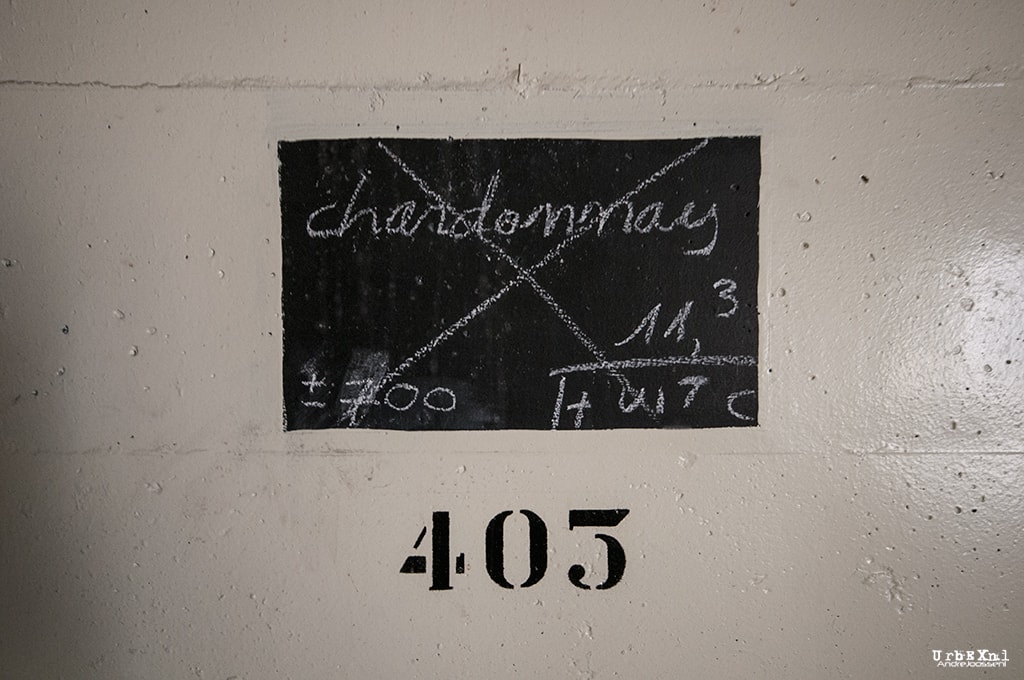 chardonnay
11,3
±700
405
UrbEXnl
AndreJoosse.nl